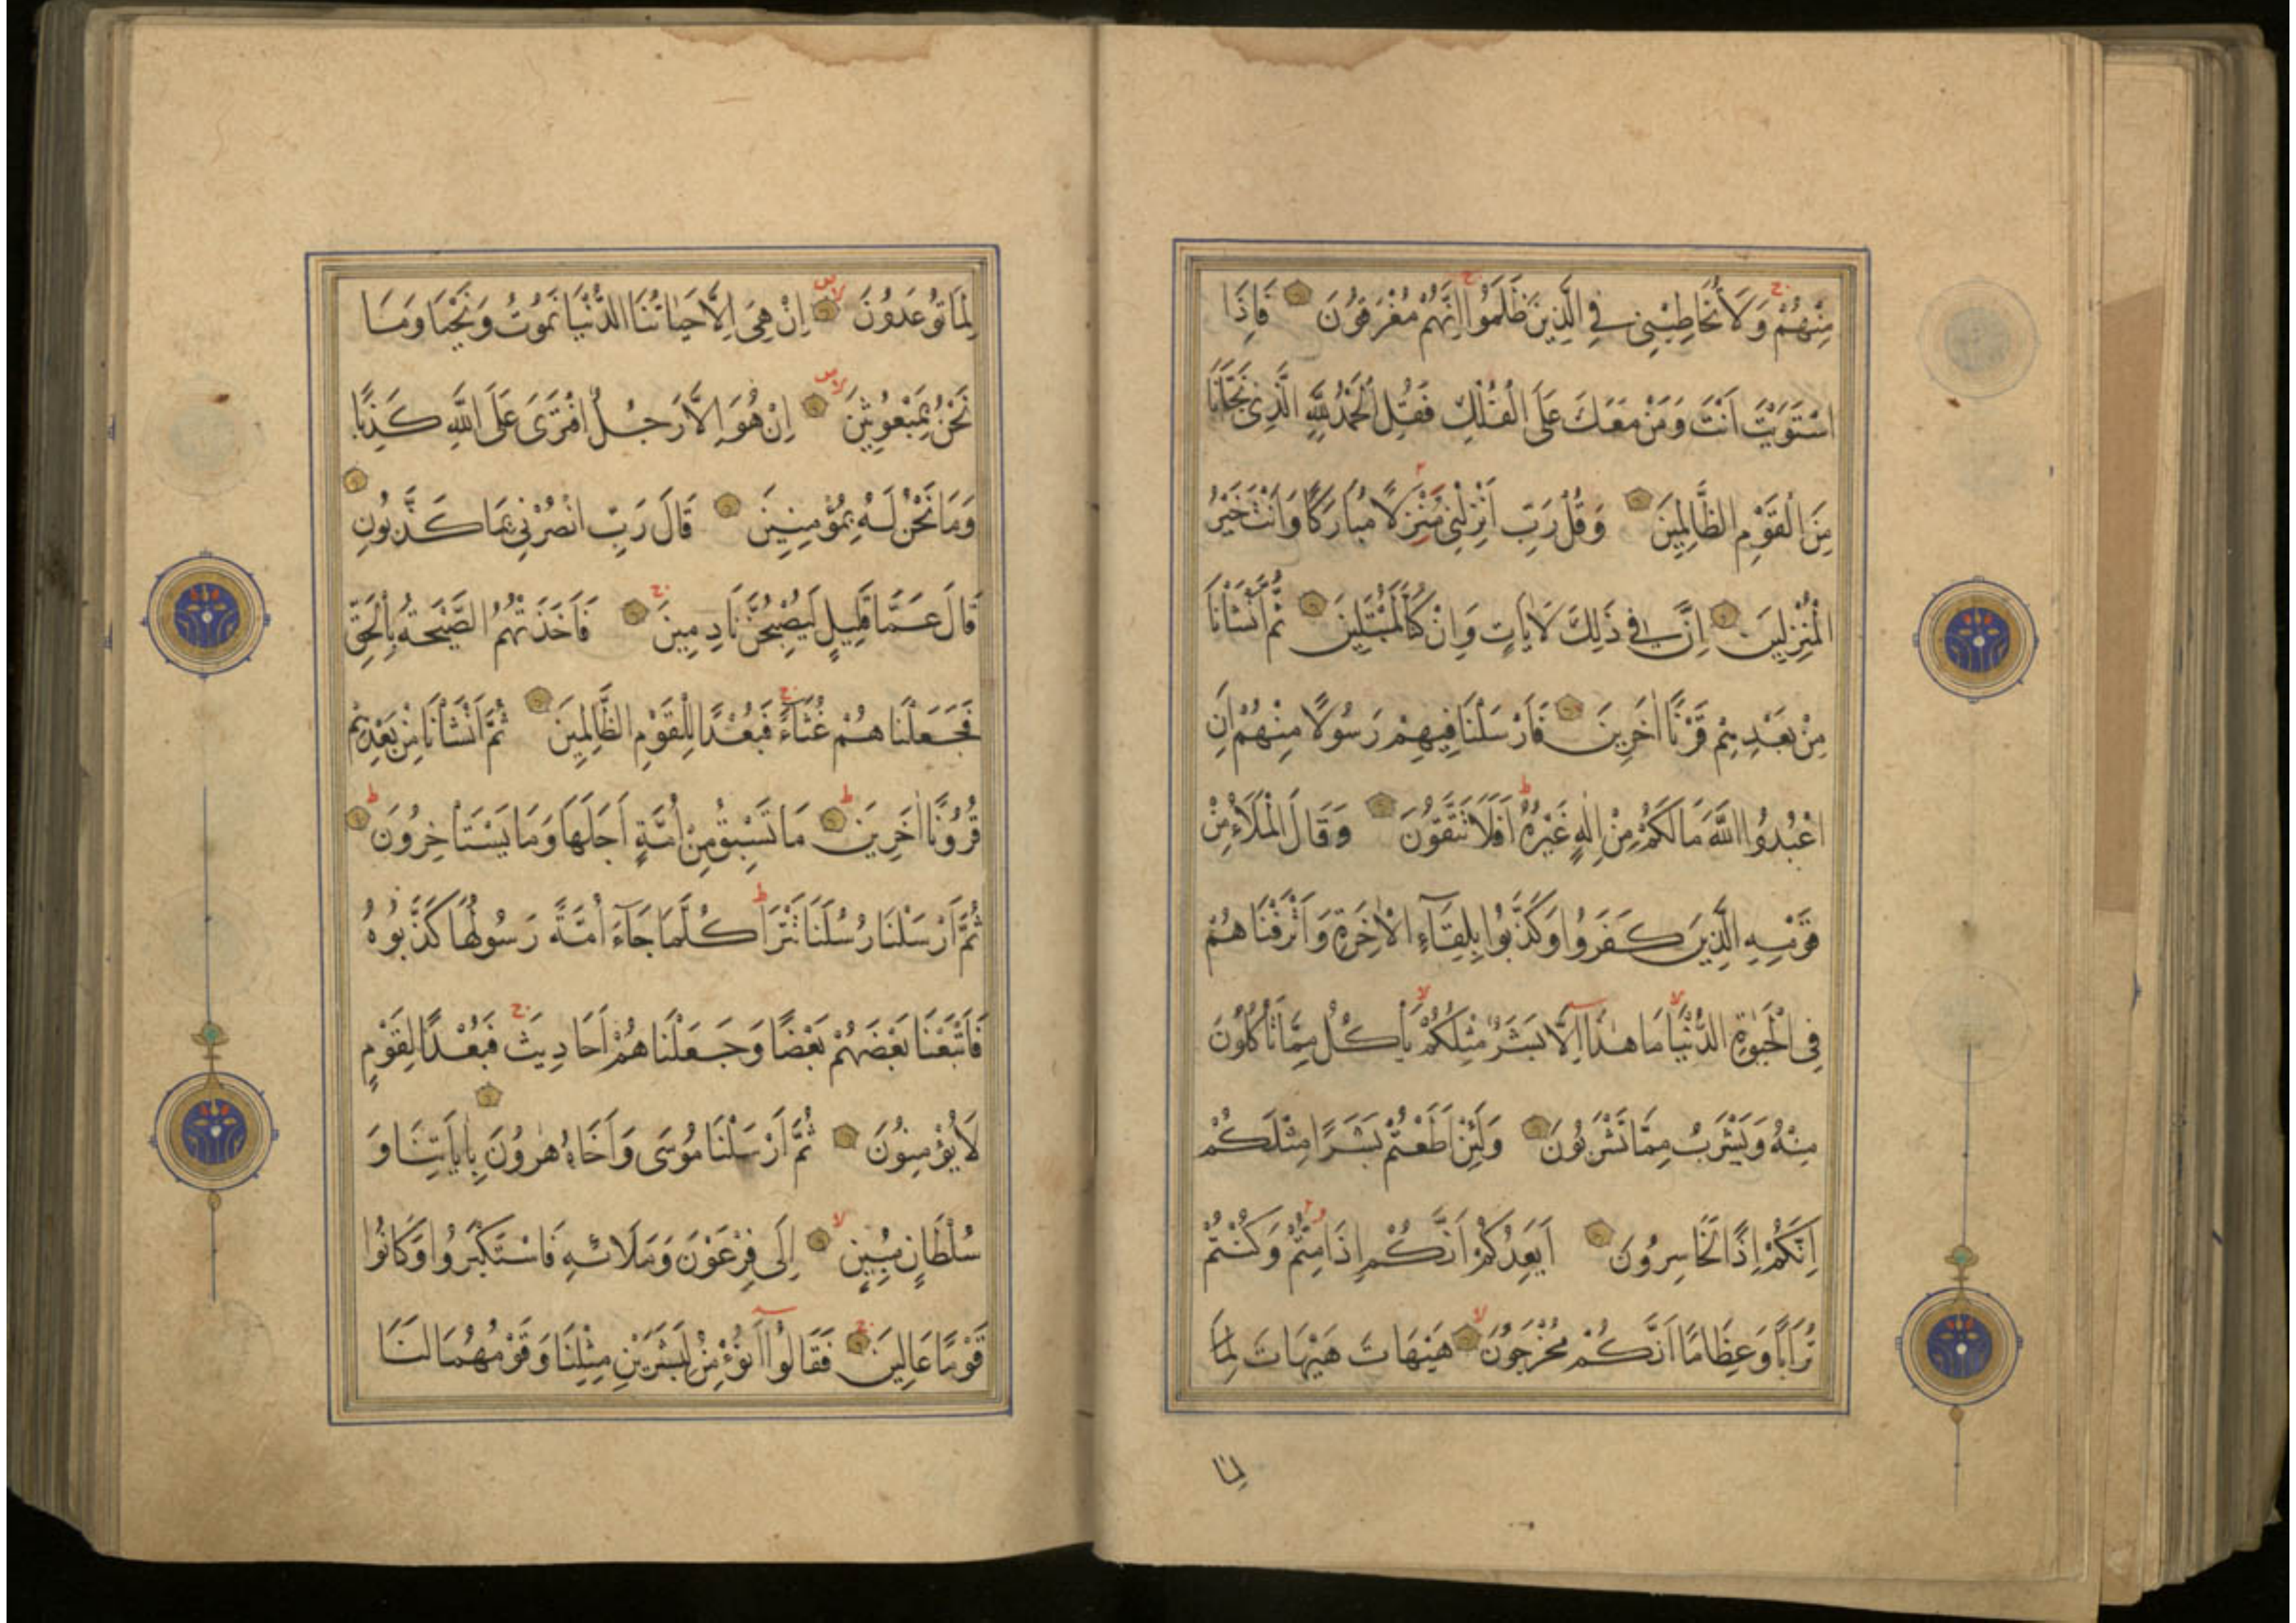 مِنْهُمْ وَلَا تُخَاطِبْنِي فِي الَّذِينَ ظَلَمُوا اِنَّهُمْ مُغْرَقُونَ فَاِذَا
اسْتَوَيْتَ اَنْتَ وَمَنْ مَعَكَ عَلَى الْفُلْكِ فَقُلِ الْحَمْدُ لِلّٰهِ الَّذِي نَجّٰانَا
مِنَ الْقَوْمِ الظَّالِمِينَ وَقُلْ رَبِّ اَنْزِلْنِي مُنْزَلًا مُبَارَكًا وَاَنْتَ خَيْرُ
الْمُنْزِلِينَ اِنَّ فِي ذَلِكَ لَاٰيَاتٍ وَاِنْ كُنَّا لَمُبْتَلِينَ ثُمَّ اَنْشَأْنَا
مِنْ بَعْدِهِمْ قَرْنًا اٰخَرِينَ فَاَرْسَلْنَا فِيهِمْ رَسُولًا مِنْهُمْ اَنِ
اعْبُدُوا اللّٰهَ مَا لَكُمْ مِنْ اِلٰهٍ غَيْرُهُ اَفَلَا تَتَّقُونَ وَقَالَ الْمَلَأُ مِنْ
قَوْمِهِ الَّذِينَ كَفَرُوا وَكَذَّبُوا بِلِقَآءِ الْاٰخِرَةِ وَاَتْرَفْنَاهُمْ
فِي الْحَيٰوةِ الدُّنْيَا مَا هٰذَا اِلَّا بَشَرٌ مِثْلُكُمْ يَأْكُلُ مِمَّا تَأْكُلُونَ
مِنْهُ وَيَشْرَبُ مِمَّا تَشْرَبُونَ وَلَئِنْ اَطَعْتُمْ بَشَرًا مِثْلَكُمْ
اِنَّكُمْ اِذًا لَخَاسِرُونَ اَيَعِدُكُمْ اَنَّكُمْ اِذَا مِتُّمْ وَكُنْتُمْ
تُرَابًا وَعِظَامًا اَنَّكُمْ مُخْرَجُونَ هَيْهَاتَ هَيْهَاتَ لِمَا
لِمَا
لِمَا تُوعَدُونَ اِنْ هِيَ اِلَّا حَيَاتُنَا الدُّنْيَا نَمُوتُ وَنَحْيَا وَمَا
نَحْنُ بِمَبْعُوثِينَ اِنْ هُوَ اِلَّا رَجُلٌ افْتَرَى عَلَى اللّٰهِ كَذِبًا
وَمَا نَحْنُ لَهُ بِمُؤْمِنِينَ قَالَ رَبِّ انْصُرْنِي بِمَا كَذَّبُونِ
قَالَ عَمَّا قَلِيلٍ لَيُصْبِحُنَّ نَادِمِينَ فَاَخَذَتْهُمُ الصَّيْحَةُ بِالْحَقِّ
فَجَعَلْنَاهُمْ غُثَآءً فَبُعْدًا لِلْقَوْمِ الظَّالِمِينَ ثُمَّ اَنْشَأْنَا مِنْ بَعْدِهِمْ
قُرُونًا اٰخَرِينَ مَا تَسْبِقُ مِنْ اُمَّةٍ اَجَلَهَا وَمَا يَسْتَأْخِرُونَ
ثُمَّ اَرْسَلْنَا رُسُلَنَا تَتْرَا كُلَّمَا جَآءَ اُمَّةً رَسُولُهَا كَذَّبُوهُ
فَاَتْبَعْنَا بَعْضَهُمْ بَعْضًا وَجَعَلْنَاهُمْ اَحَادِيثَ فَبُعْدًا لِقَوْمٍ
لَا يُؤْمِنُونَ ثُمَّ اَرْسَلْنَا مُوسَى وَاَخَاهُ هٰرُونَ بِاٰيَاتِنَا وَ
سُلْطَانٍ مُبِينٍ اِلَى فِرْعَوْنَ وَمَلَائِهِ فَاسْتَكْبَرُوا وَكَانُوا
قَوْمًا عَالِينَ فَقَالُوا اَنُؤْمِنُ لِبَشَرَيْنِ مِثْلِنَا وَقَوْمُهُمَا لَنَا